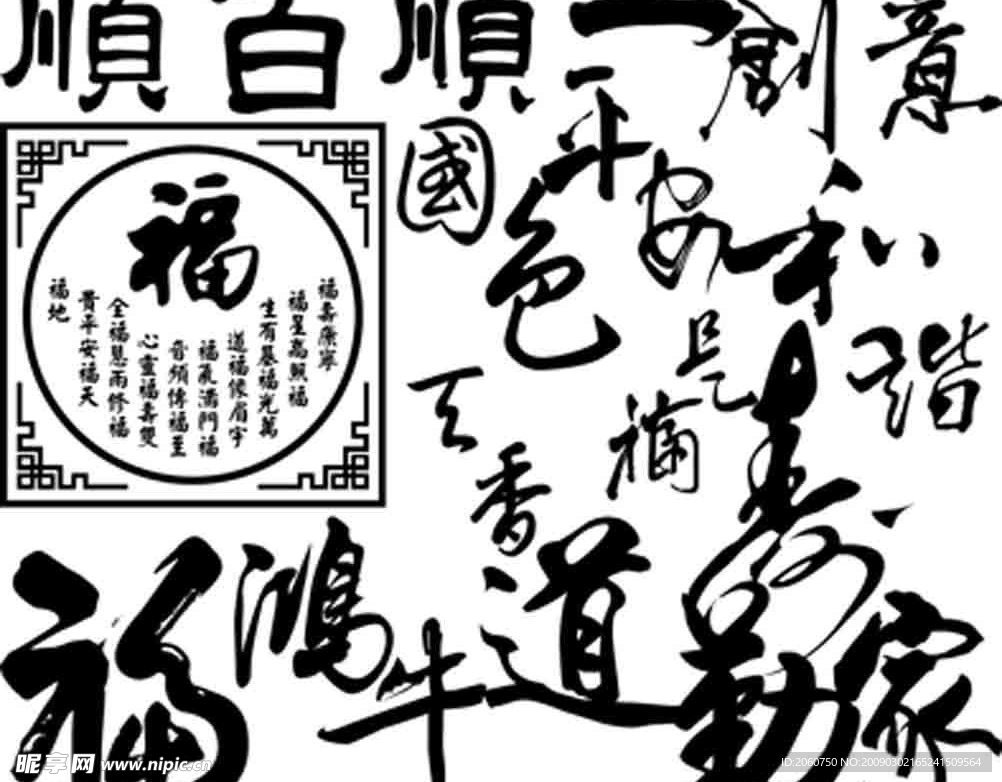 順百順
一
創意
國色天香
平安是福
和諧
福
福壽康寧
福星高照福
生有基福光萬
道福像眉宇
福滿門福
音頻傳福至
心靈福壽雙
全福慧雨修福
貴平安福天
福地
壽
福
鴻
牛
道
勤
家
昵享网 www.nipic.cn
ID:2060750 NO:20090302165241509564